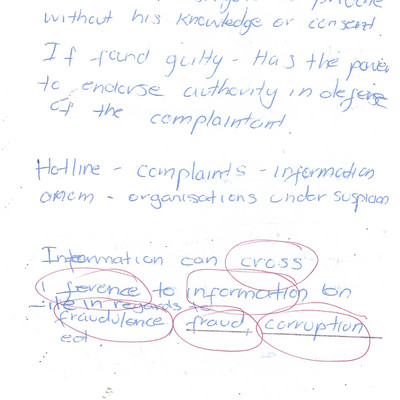 without his knowledge or consent.
If found guilty - Has the power
to endorse authority in defense
of the complaintant.
Hotline - complaints - information
- organisations under suspicion
Information can cross
ference to information on
- in regards to
fraudulence, fraud, corruption
ect.